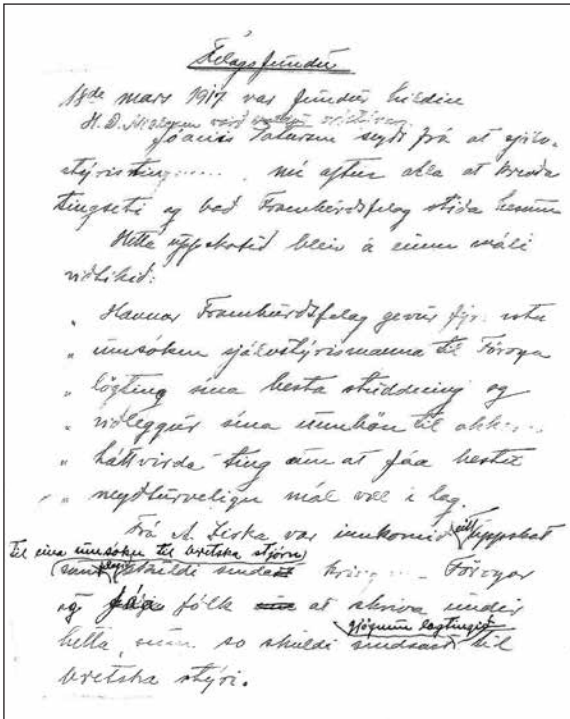 Felagsfundur
18de mars 1917 var fundur hildin
H. D. valdur orðstýrari
Jóannis Patursson segði frá at sjálv-
stýristing nú aftur at
tingseti og bað Framburðsfelag stiða henum
Hetta uppskotið bleiv á einum máli
viðtikið:
" Havnar Framburðsfelag gevur fyri
" umsókn sjálvstýrismanna til Föroya
" lögting sína besta studdning og
" viðleggur sína umbön til
" háttvirda ting um at fáa hesta
" neyðturveligu mál væl i lag.
Frá A. Ziska var innkomið eitt uppskot
til eina umsókn til bretska stjórn
sum skuldi sendast kring Föroyar
og fáa fólk at skriva undir
hetta, sum so skuldi gjögnum lagtingið sendast til
bretska stýri.